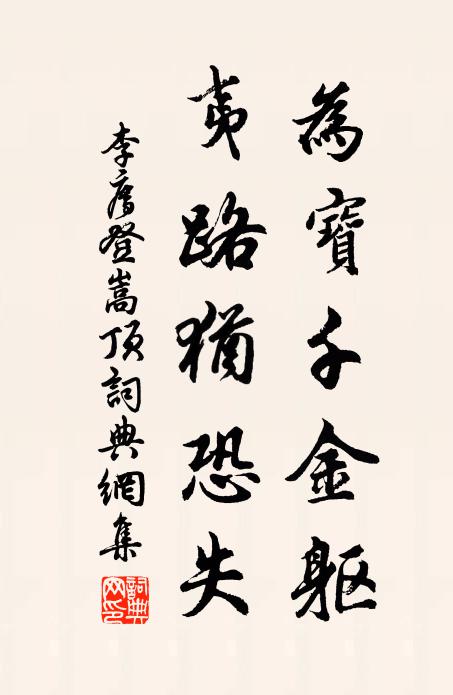 為寶千金軀
夷路猶恐失
李廌登嵩頂詞典網集
詞典網印